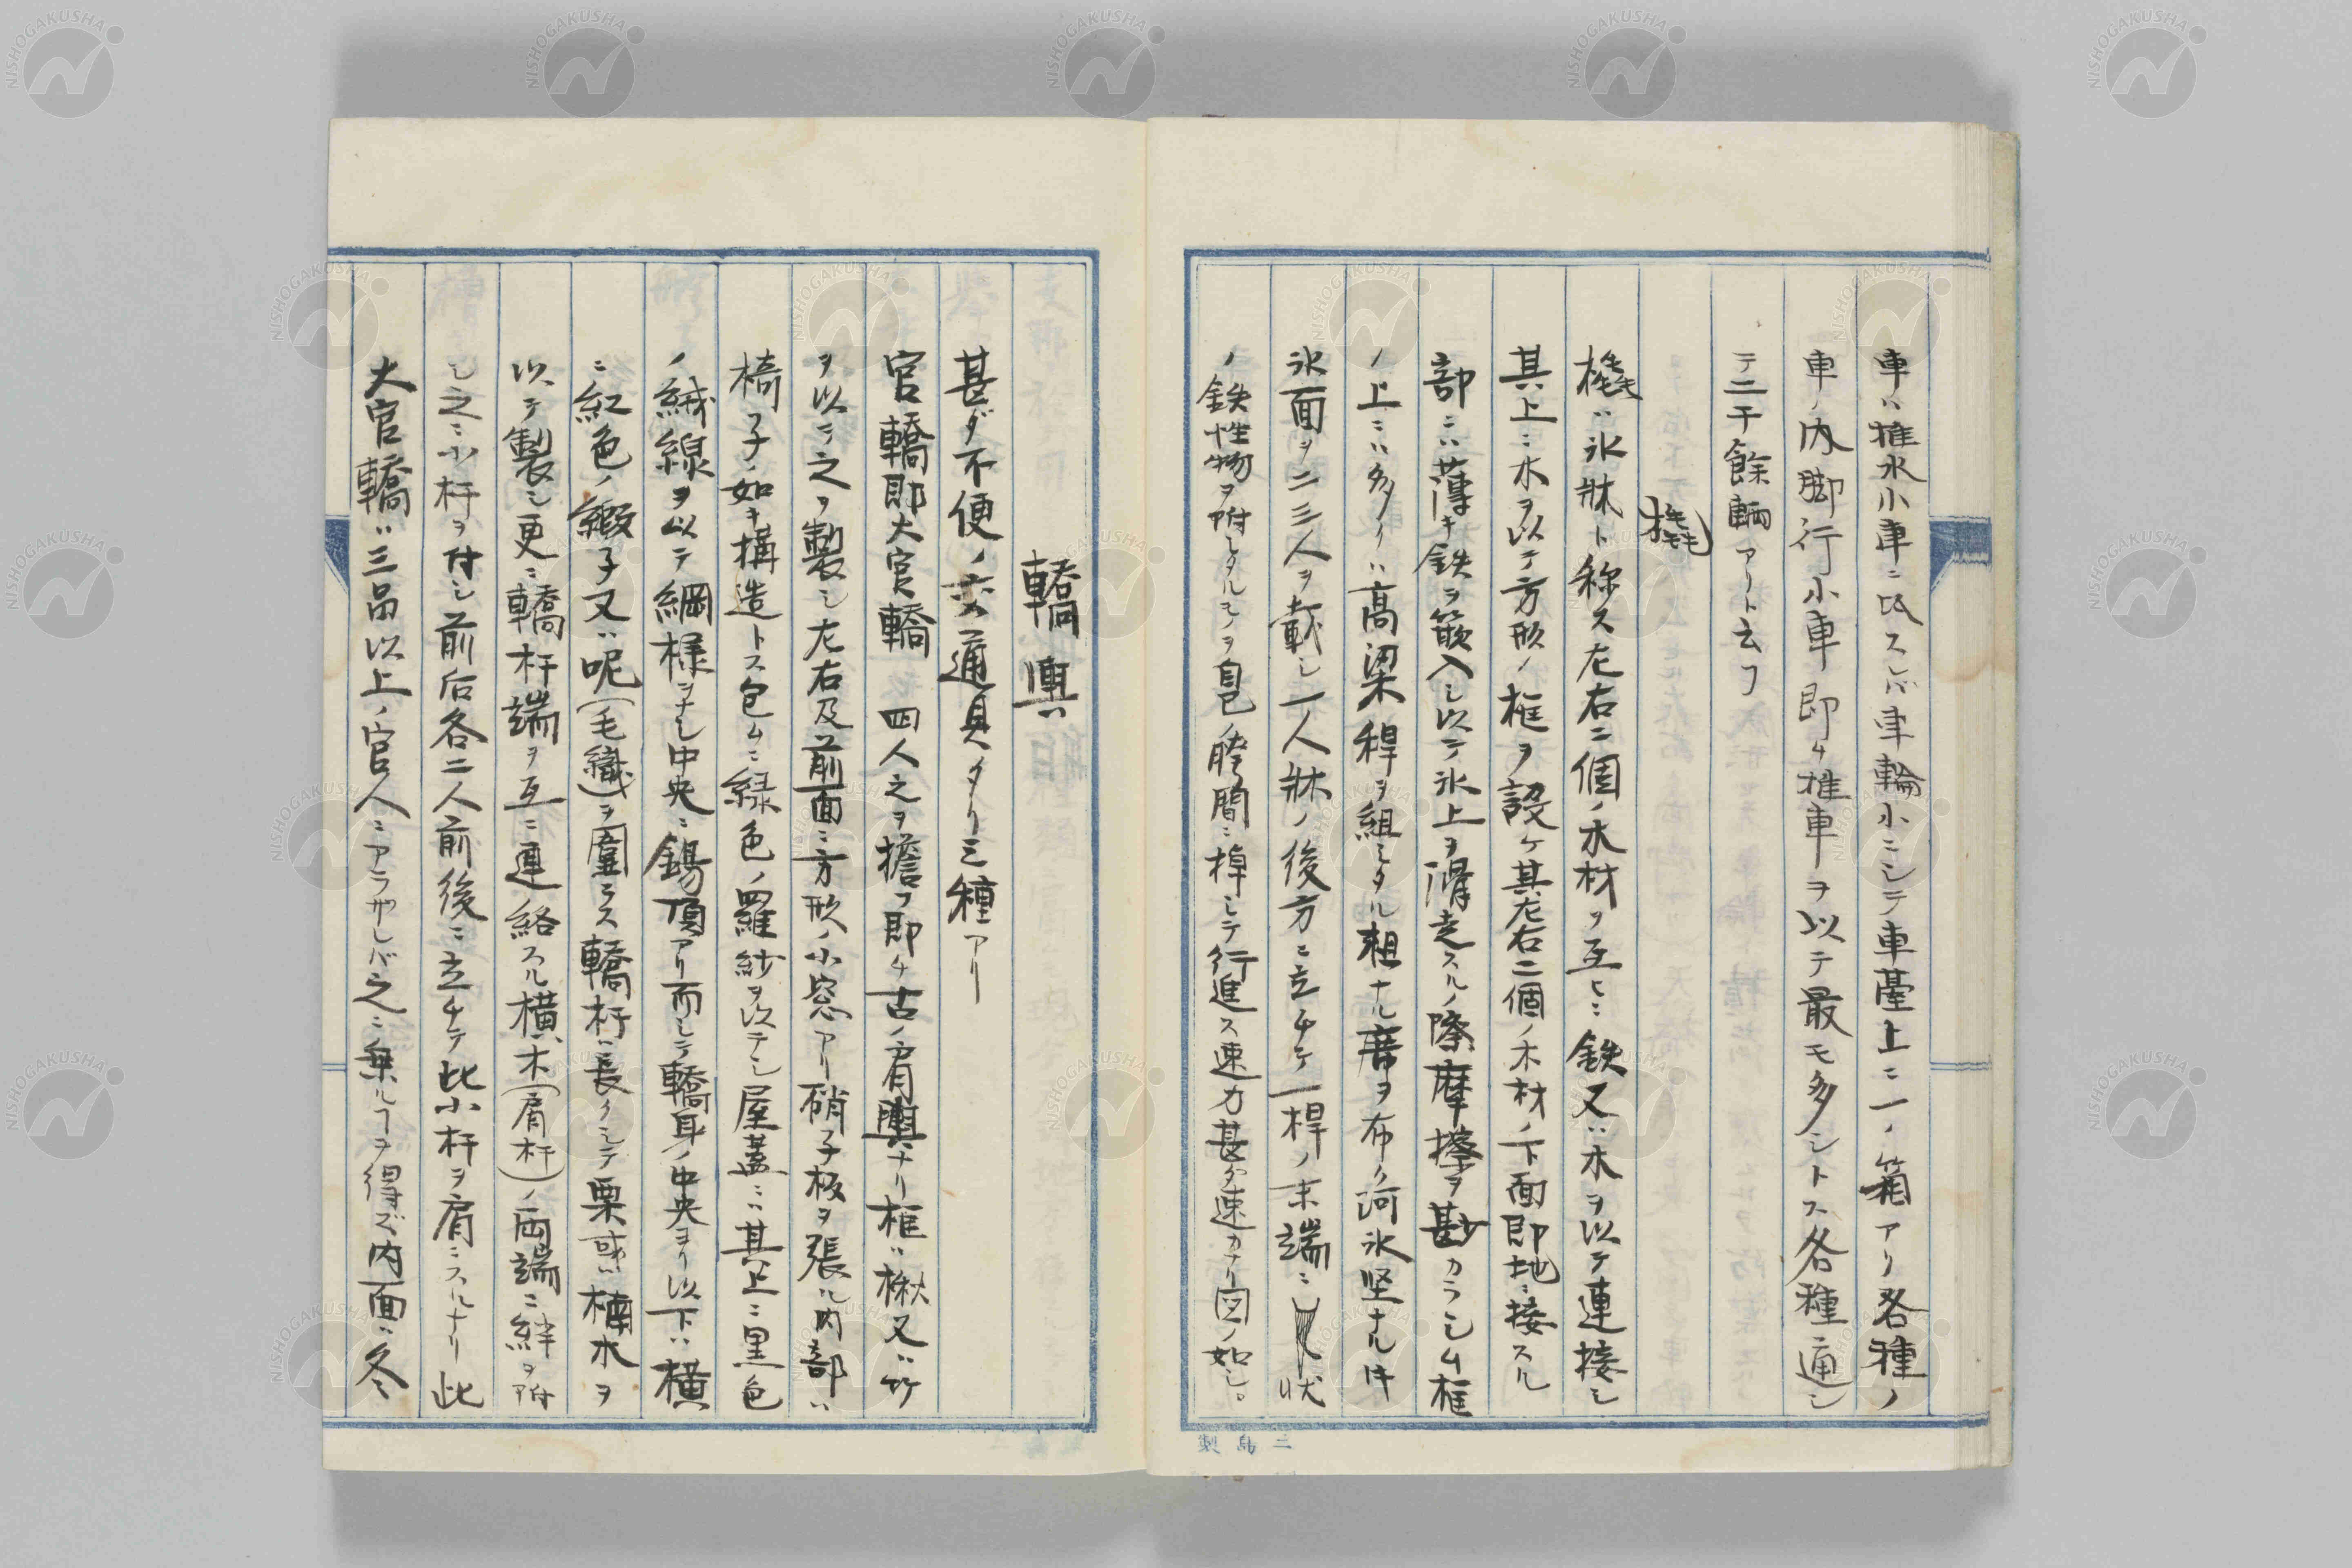 車ハ推水小車ニ比スレバ車輪小ニシテ車薹上ニ一ノ箱アリ各種ノ
車ノ内脚行小車即チ推車ヲ以テ最モ多シトス各種通シ
テ二千餘輌アリト云フ
橇
橇ハ氷牀ト称ス左右二個ノ木材ヲ互ヒニ鉄又ハ木ヲ以テ連接シ
其上ニ木ヲ以テ方形ノ框ヲ設ケ其左右二個ノ木材ノ下面即地ニ接スル
部ニハ薄キ鉄ヲ嵌入シ以テ氷上ヲ滑走スルノ際摩擦ヲ尠カラシム框
ノ上ニハ多クハ高梁稈ヲ組ミタル粗ナル蓆ヲ布ク河氷坚ナル件
氷面ヲ二三人ヲ載シ一人牀ノ後方ニ立チテ一桿ノ末端ニ状
ノ鉄性物ヲ附シタルモノヲ自己ノ胯間ニ棹シテ行進ス速力甚ダ速カナリ図ノ如シ。
轎輿
甚ダ不便ノ交通具タリ三種アリ
官轎即大官轎 四人之ヲ擔フ即チ古ノ肩輿ナリ框ハ楸又ハ竹
ヲ以テ之ヲ製シ左右及前面ニ方形ノ小窓アリ硝子板ヲ張ル内部ハ
椅子ノ如キ構造トス包ムニ緑色ノ羅紗ヲ以テシ屋蓋ニハ其上ニ黒色
ノ絨線ヲ以テ綱様ヲナシ中央ニ錫頂アリ而シテ轎身ノ中央ヨリ以下ハ横
ニ紅色ノ緞子又ハ呢(毛織)ヲ圍ラス轎杆ハ長クシテ栗或ハ楠木ヲ
以テ製シ更ニ轎杆端ヲ互ニ連絡スル横木(肩杆)ノ両端ニ絆ヲ附
シ之ニ小杆ヲ付シ前后各二人前後ニ立チテ此小杆ヲ肩ニスルナリ此
大官轎ハ三品以上ノ官人ニアラザレバ之ニ乗ルヿヲ得ズ内面ハ冬
製島二
NISHOGAKUSHA